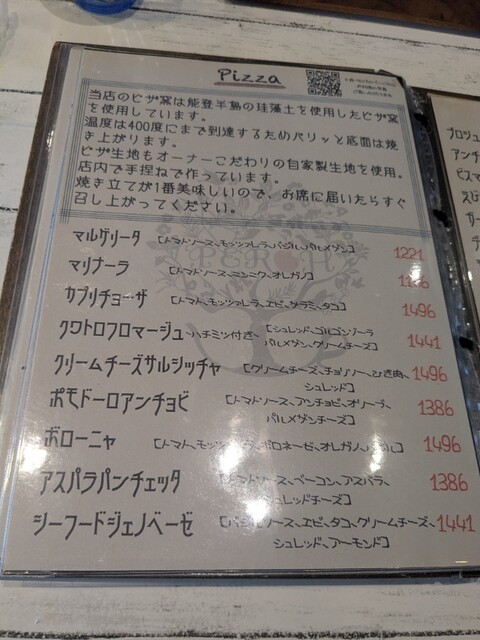 Pizza
当店のピザ窯は能登半島の珪藻土を使用したピザ窯
を使用しています。
温度は400度にまで到達するためパリッと底面は焼
き上がります。
ピザ生地もオーナーこだわりの自家製生地を使用。
店内で手捏ねで作っています。
焼き立てが1番美味しいので、お席に届いたらすぐ
召し上がってください。
マルゲリータ [トマトソース、モッツァレラ、バジル、パルメザン] 1221
マリナーラ [トマトソース、ニンニク、オレガノ]
カプリチョーザ [トマト、モッツァレラ、エビ、サラミ、タコ] 1496
クワトロフロマージュ~ハチミツ付き~ [シュレッド、ゴルゴンゾーラ
パルメザン、クリームチーズ] 1441
クリームチーズサルシッチャ [クリームチーズ、チョリソー、ひき肉、
シュレッド] 1496
ポモドーロアンチョビ [トマトソース、アンチョビ、オリーブ、
パルメザンチーズ] 1386
ボローニャ [トマト、モッツァレラ、ボロネーゼ、オレガノ、バジル] 1496
アスパラパンチェッタ [トマトソース、ベーコン、アスパラ、
シュレッドチーズ] 1386
シーフードジェノベーゼ [バジルソース、エビ、タコ、クリームチーズ、
シュレッド、アーモンド] 1441
プロシュ
アンチ
ピスマ